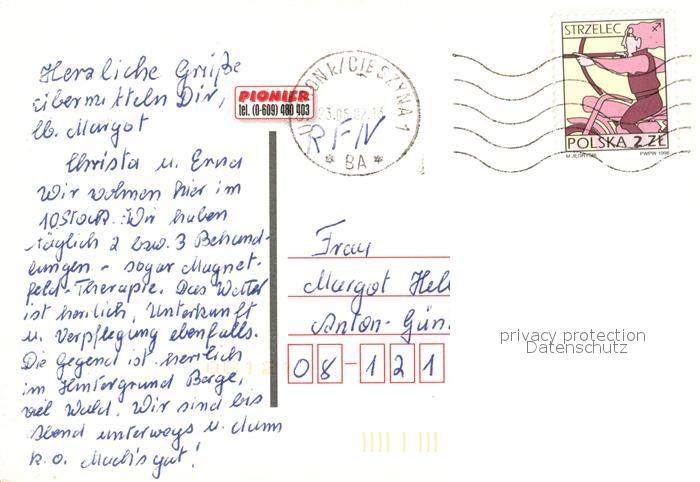 Herzliche Grüße
übermitteln Dir,
lb. Margot
Christa u. Erna
Wir wohnen hier im
10 Stock. Wir haben
täglich 2 bzw. 3 Behand-
lungen - sogar Magnet-
feld-Therapie. Das Wetter
ist herrlich, Unterkunft
u. Verpflegung ebenfalls.
Die Gegend ist herrlich
im Hintergrund Berge,
viel Wald. Wir sind bis
Abend unterwegs u. dann
k.o. Mach's gut!
PIONIER
tel. (0-609) 480 403
USTROŃ k/CIESZYNA 1
23.05.02.13
BA
RFN
STRZELEC
POLSKA 2 ZŁ
PWPW 1996
Frau
Margot Hell
Anton-Gün
08-121
privacy protection
Datenschutz